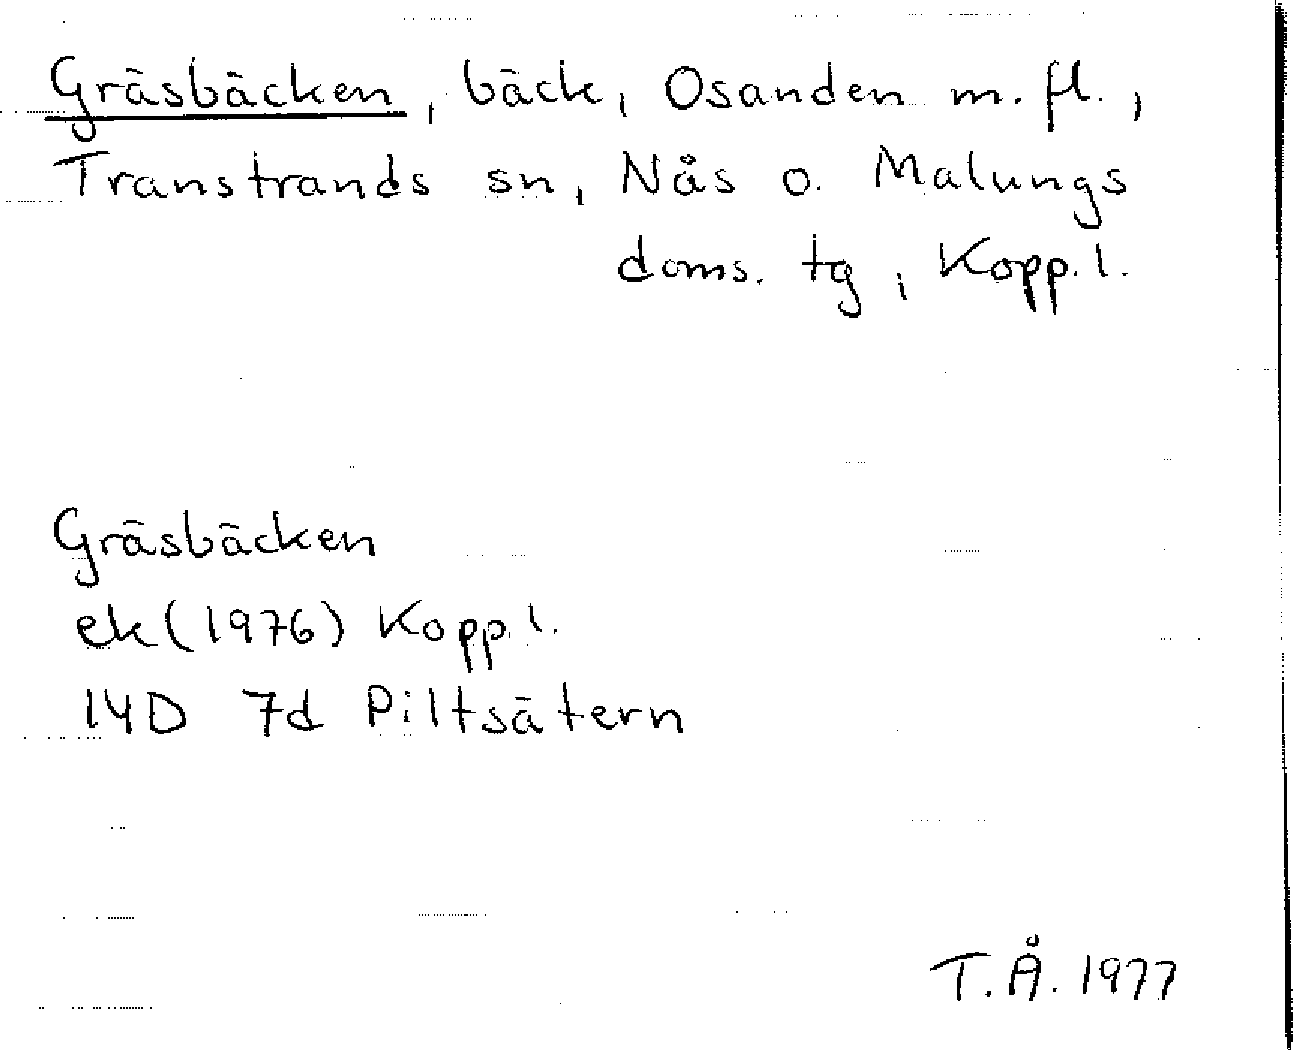 Gräsbäcken, bäck, Osanden m. fl.,
Transtrands sn, Nås o. Malungs
doms. tg, Kopp. l.
Gräsbäcken
ek (1976) Kopp. l.
14D 7d Piltsätern
T. Å. 1977